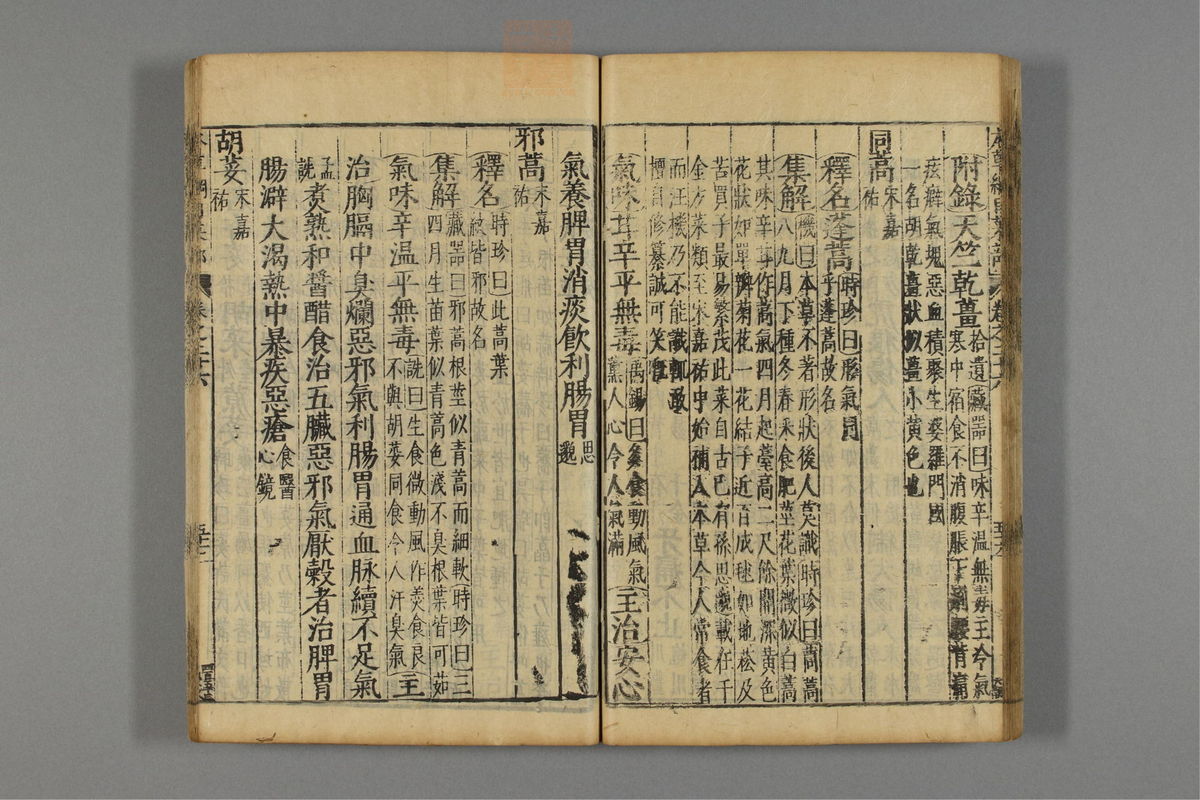 附錄天竺乾薑拾遺藏器曰味辛溫無毒主冷氣
寒中宿食不消腹脹下
痃癖氣塊惡血積聚生婆羅門國
一名胡乾薑狀似薑小黃色也
同蒿宋嘉
祐
釋名蓬蒿時珍曰形氣同
乎蓬蒿故名
集解機曰本草不著形狀後人莫識時珍曰茼蒿
八九月下種冬春采食肥莖花葉微似白蒿
其味辛甘作蒿氣四月起薹高二尺餘開深黃色
花狀如單瓣菊花一花結子近百成毬如地菘及
苦蕒子最易繁茂此菜自古已有孫思邈載在千
金方菜類至宋嘉祐中始補入本草今人常食者
而汪機乃不能識輒敢
擅自修纂誠可笑慨
氣味甘辛平無毒禹錫曰多食動風氣
熏人心令人氣滿
主治安心
氣養脾胃消痰飲利腸胃思
邈
邪蒿宋嘉
祐
釋名時珍曰此蒿葉
紋皆邪故名
集解藏器曰邪蒿根莖似青蒿而細軟時珍曰三
四月生苗葉似青蒿色淺不臭根葉皆可茹
氣味辛溫平無毒詵曰生食微動風作羹食良
不與胡荽同食令人汗臭氣
主
治胸膈中臭爛惡邪氣利腸胃通血脉續不足氣
孟
詵煑熟和醬醋食治五臟惡邪氣厭穀者治脾胃
腸澼大渴熱中暴疾惡瘡食醫
心鏡
胡荽宋嘉
祐